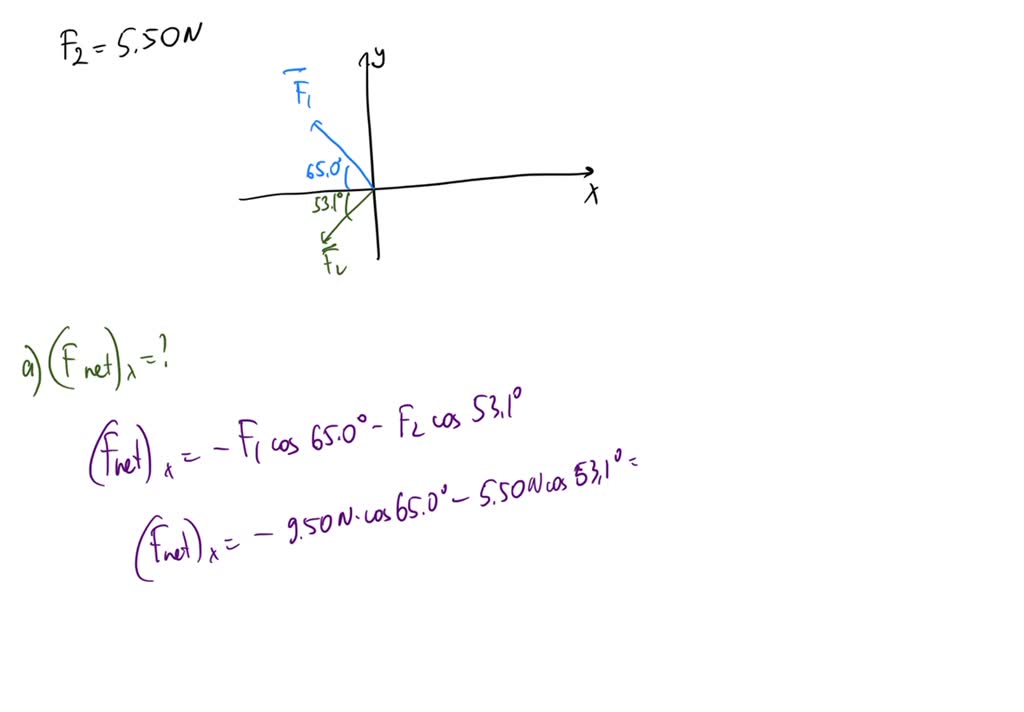 F₂ = 5.50N
y
F₁
65.0°
x
53.1°
F₂
a) (Fnet)ₓ = ?
(Fnet)ₓ = - F₁ cos 65.0° - F₂ cos 53.1°
(Fnet)ₓ = - 9.50N·cos65.0° - 5.50Ncos53.1° =